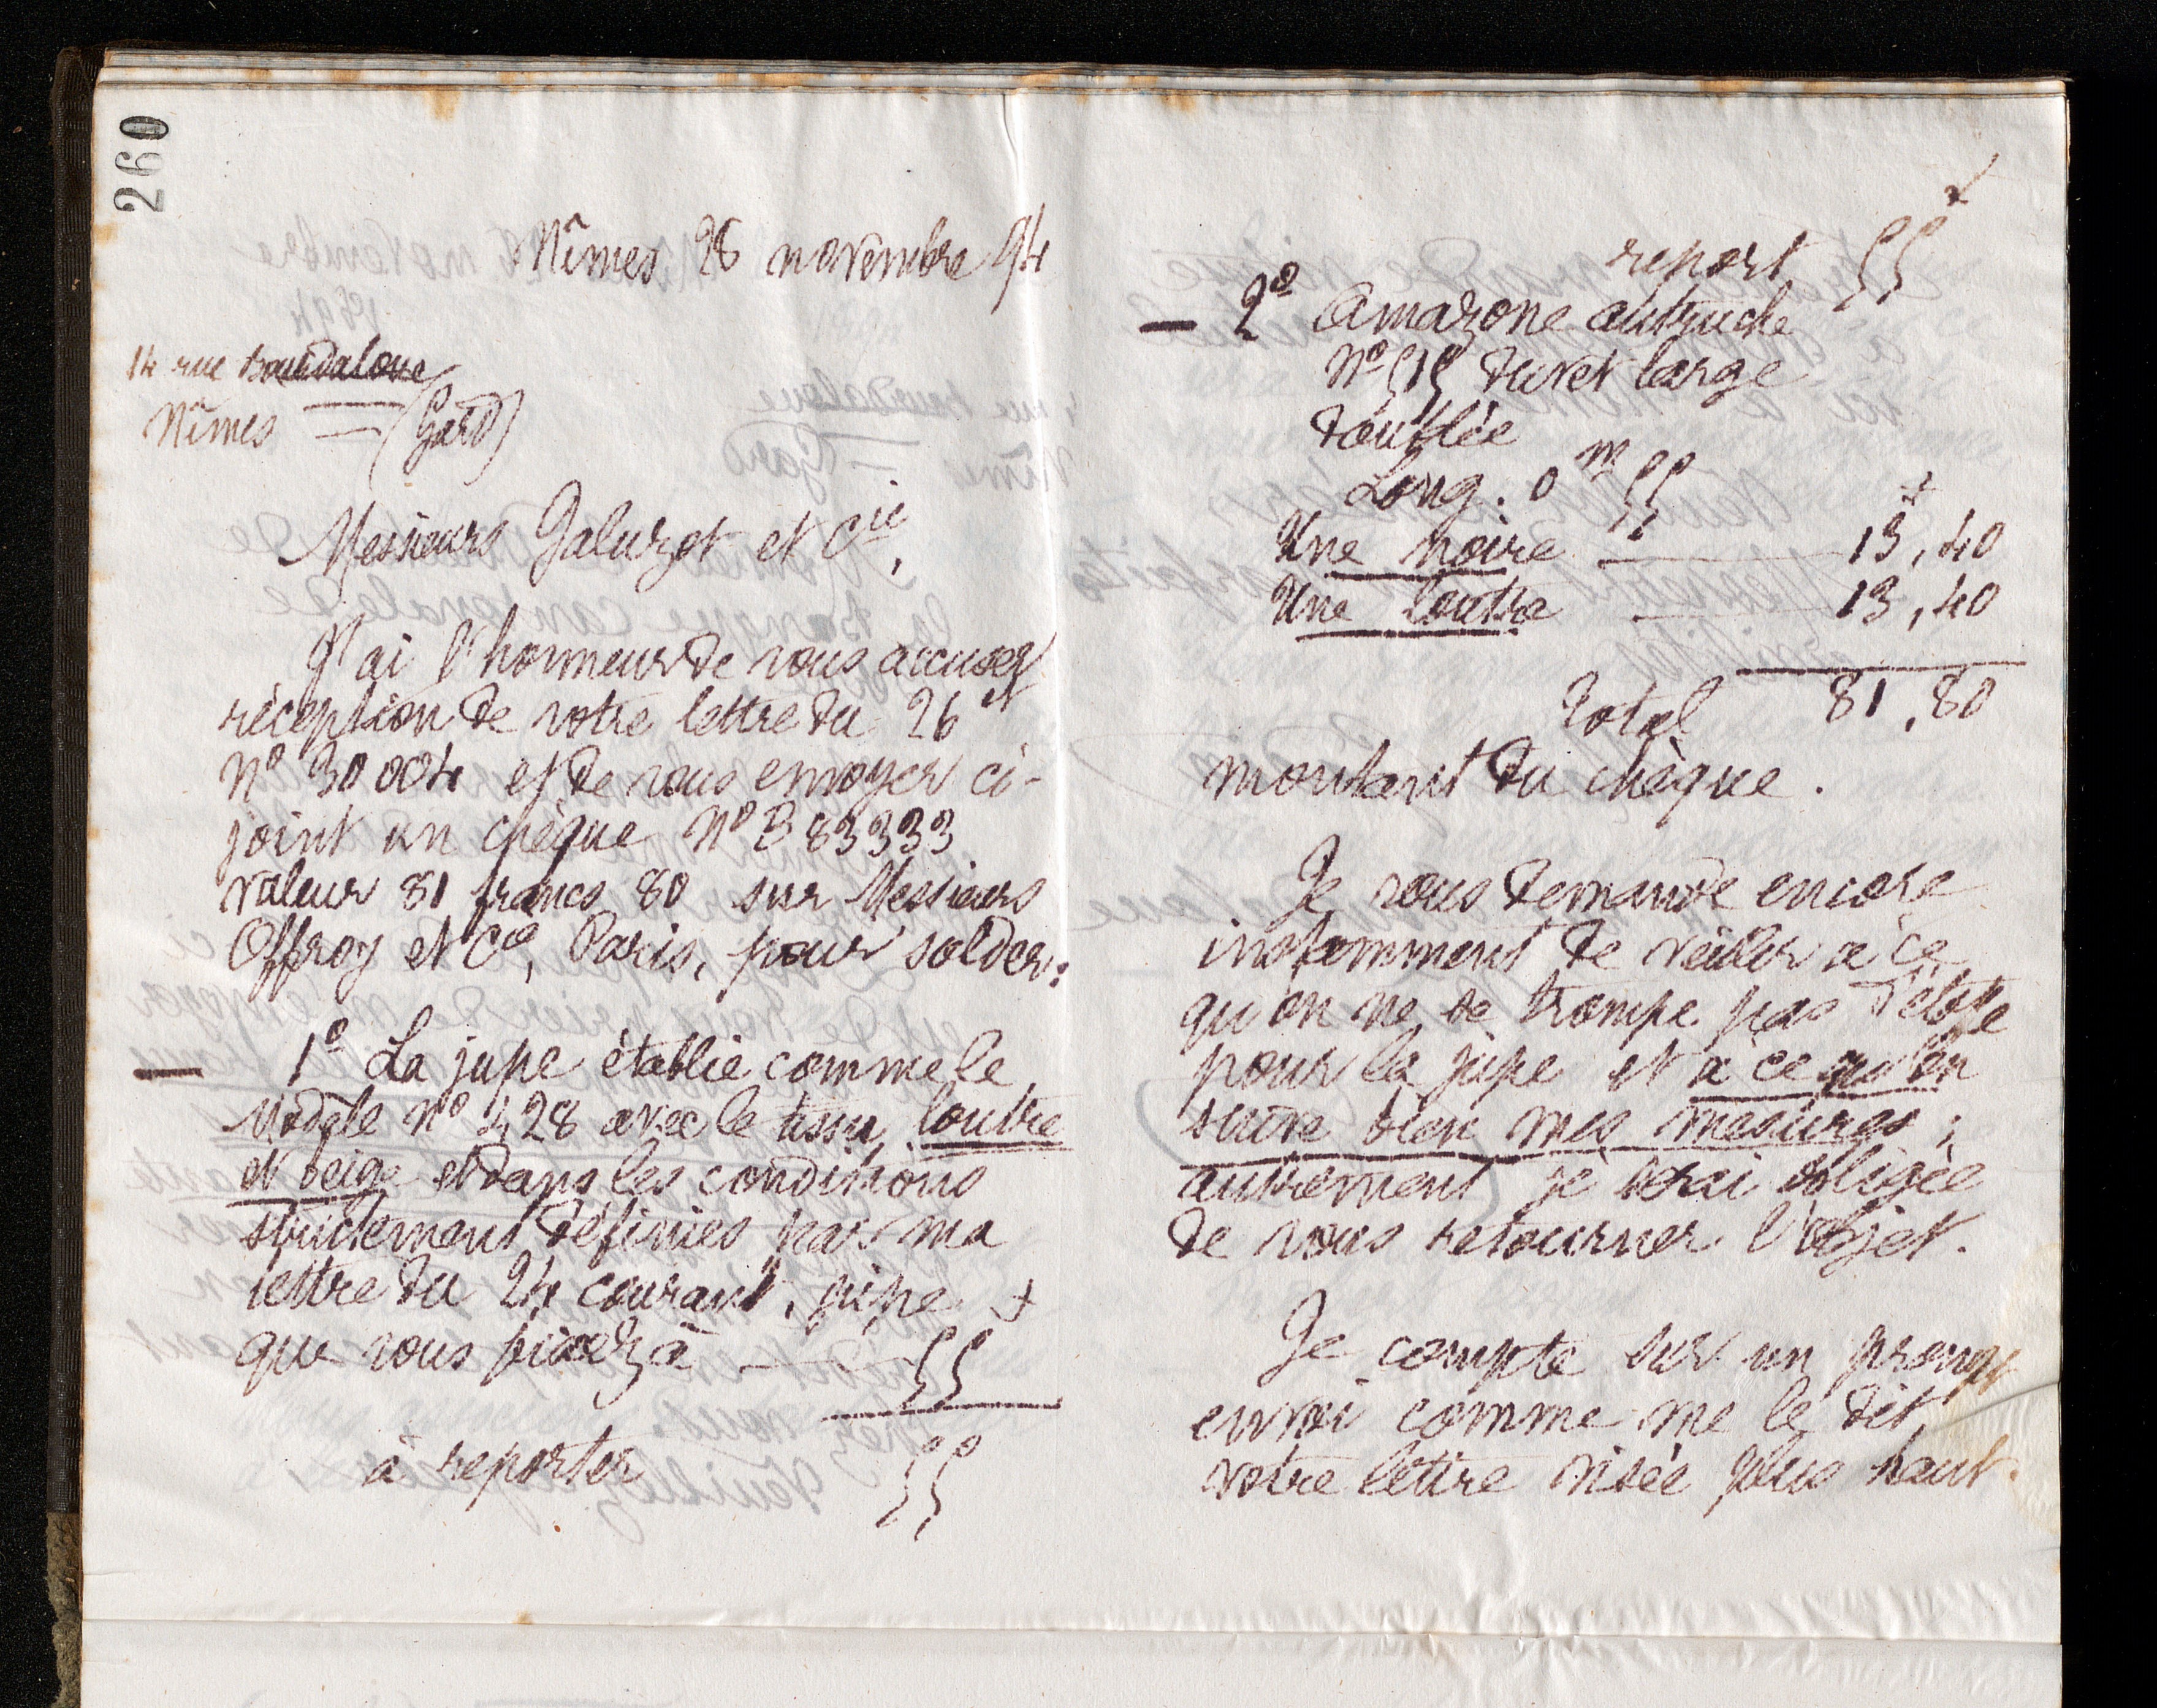 260
Nîmes 28 novembre 94
14 rue Bourdaloue
Nîmes — (Gard)
Messieurs Galuzot et Cie,
J'ai l'honneur de vous accuser
réception de votre lettre du 26 et
No 30004 et de vous envoyer ci-
joint un chèque No B 83333
valeur 81 francs 80 sur Messieurs
Offroy et Ce, Paris, pour solder:
— 1o La jupe établie comme le
Modèle No 428 avec le tissu loutre
et beige et dans les conditions
strictement définies par ma
lettre du 24 courant, jupe +
que vous fixez à — 55
à reporter 55
report 55
— 2o Amazone autruche
No 515 duvet large
doublée
Long. 0m 55
Une noire — 13,40
Une loutre — 13,40
Total 81,80
montant du chèque.
Je vous demande encore
instamment de veiller à ce
qu'on ne se trompe pas d'étoffe
pour la jupe et à ce qu'on
suive bien mes mesures;
autrement je serai obligée
de vous retourner l'objet.
Je compte sur un prompt
envoi comme me le dit
votre lettre visée plus haut.